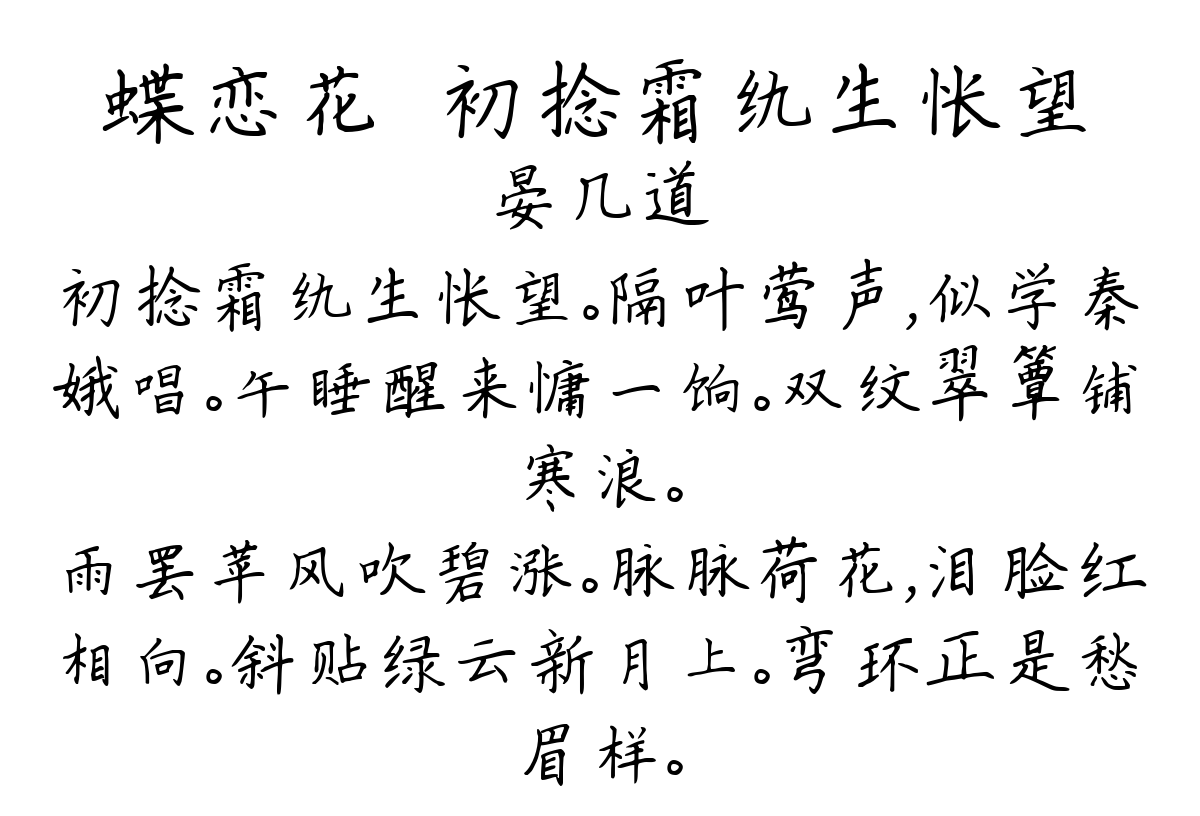 蝶恋花 初捻霜纨生怅望
晏几道
初捻霜纨生怅望。隔叶莺声,似学秦
娥唱。午睡醒来慵一饷。双纹翠簟铺
寒浪。
雨罢苹风吹碧涨。脉脉荷花,泪脸红
相向。斜贴绿云新月上。弯环正是愁
眉样。